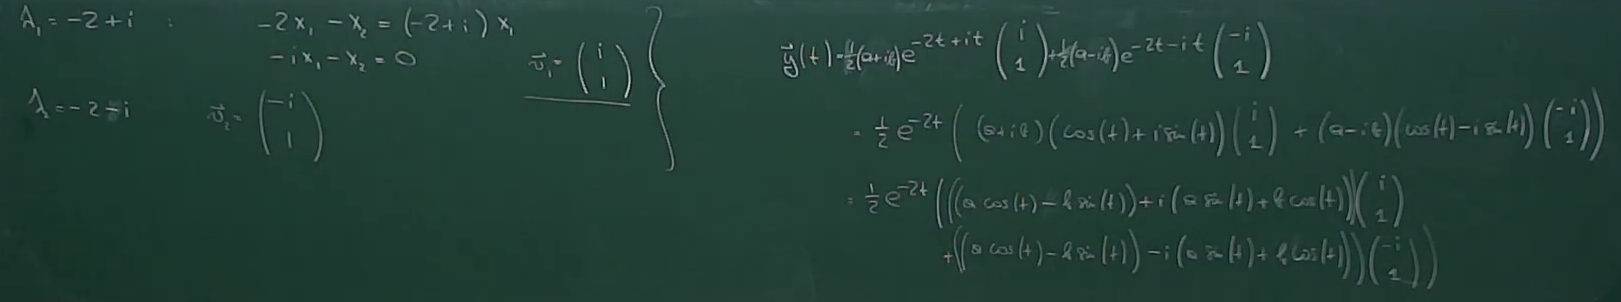 λ₁ = -2+i : -2x₁ - x₂ = (-2+i) x₁
-ix₁ - x₂ = 0 v⃗₁ = (i 1)
λ₂ = -2-i v⃗₂ = (-i 1)
y⃗(t) = ½(a+ib)e^(-2t+it) (i 1) + ½(a-ib)e^(-2t-it) (-i 1)
= ½ e^(-2t) ( (a+ib)(cos(t)+i sin(t)) (i 1) + (a-ib)(cos(t)-i sin(t)) (-i 1) )
= ½ e^(-2t) ( ((a cos(t) - b sin(t)) + i (a sin(t) + b cos(t))) (i 1)
+ ((a cos(t) - b sin(t)) - i (a sin(t) + b cos(t))) (-i 1) )